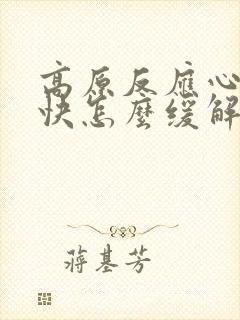 高原反應心
快怎麼緩解
蔣基芳